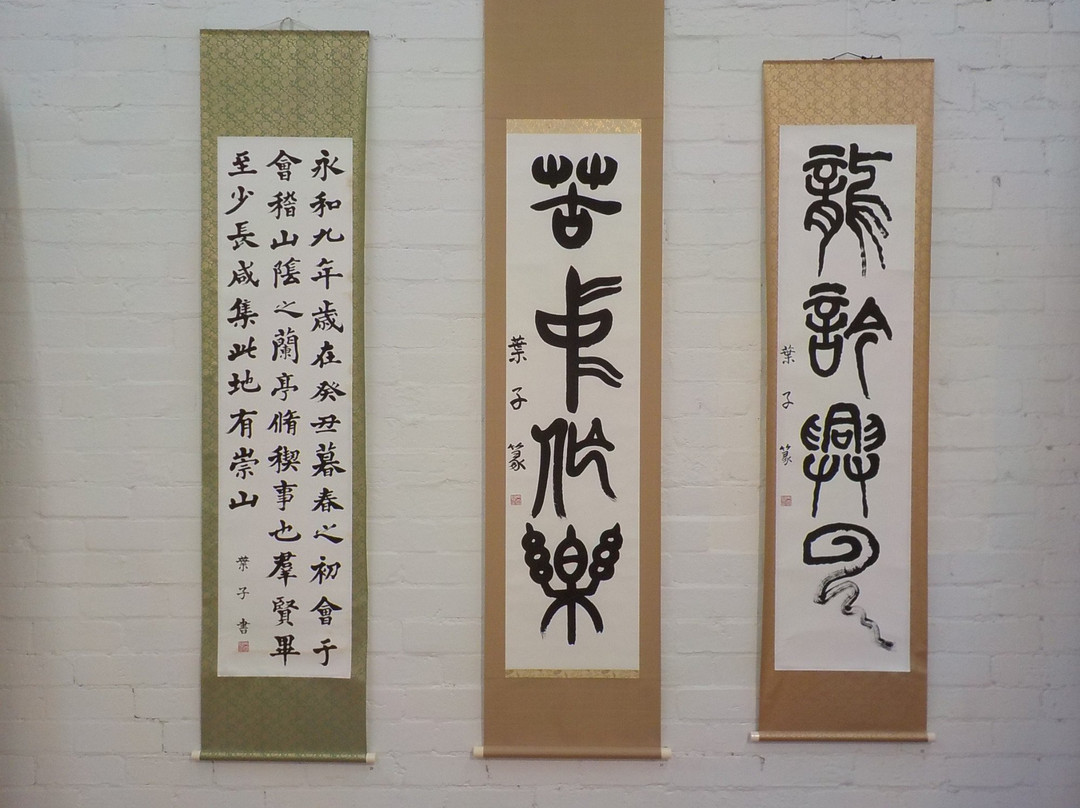 永和九年歲在癸丑暮春之初會于
會稽山陰之蘭亭脩稧事也羣賢畢
至少長咸集此地有崇山
葉子書
苦中作樂
葉子篆
龍訡興云
葉子篆